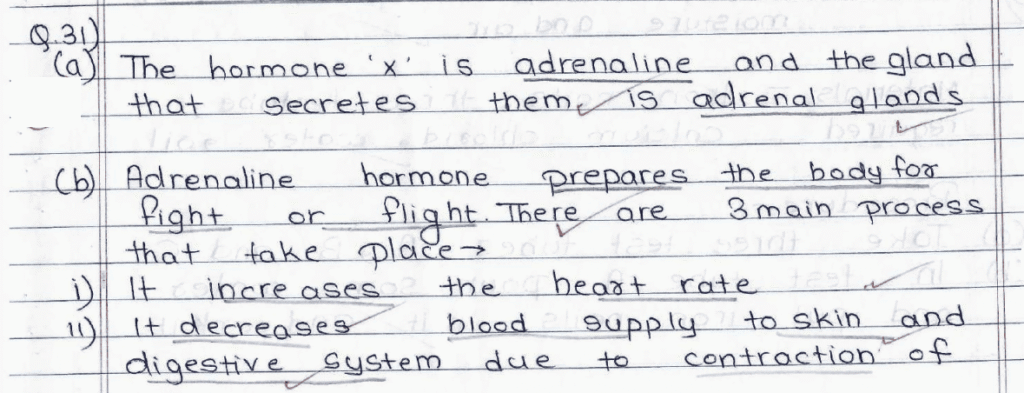 Q.31)
(a) The hormone 'x' is adrenaline and the gland
that secretes them is adrenal glands
(b) Adrenaline hormone prepares the body for
fight or flight. There are 3 main process
that take place →
i) It increases the heart rate
ii) It decreases blood supply to skin and
digestive system due to contraction of